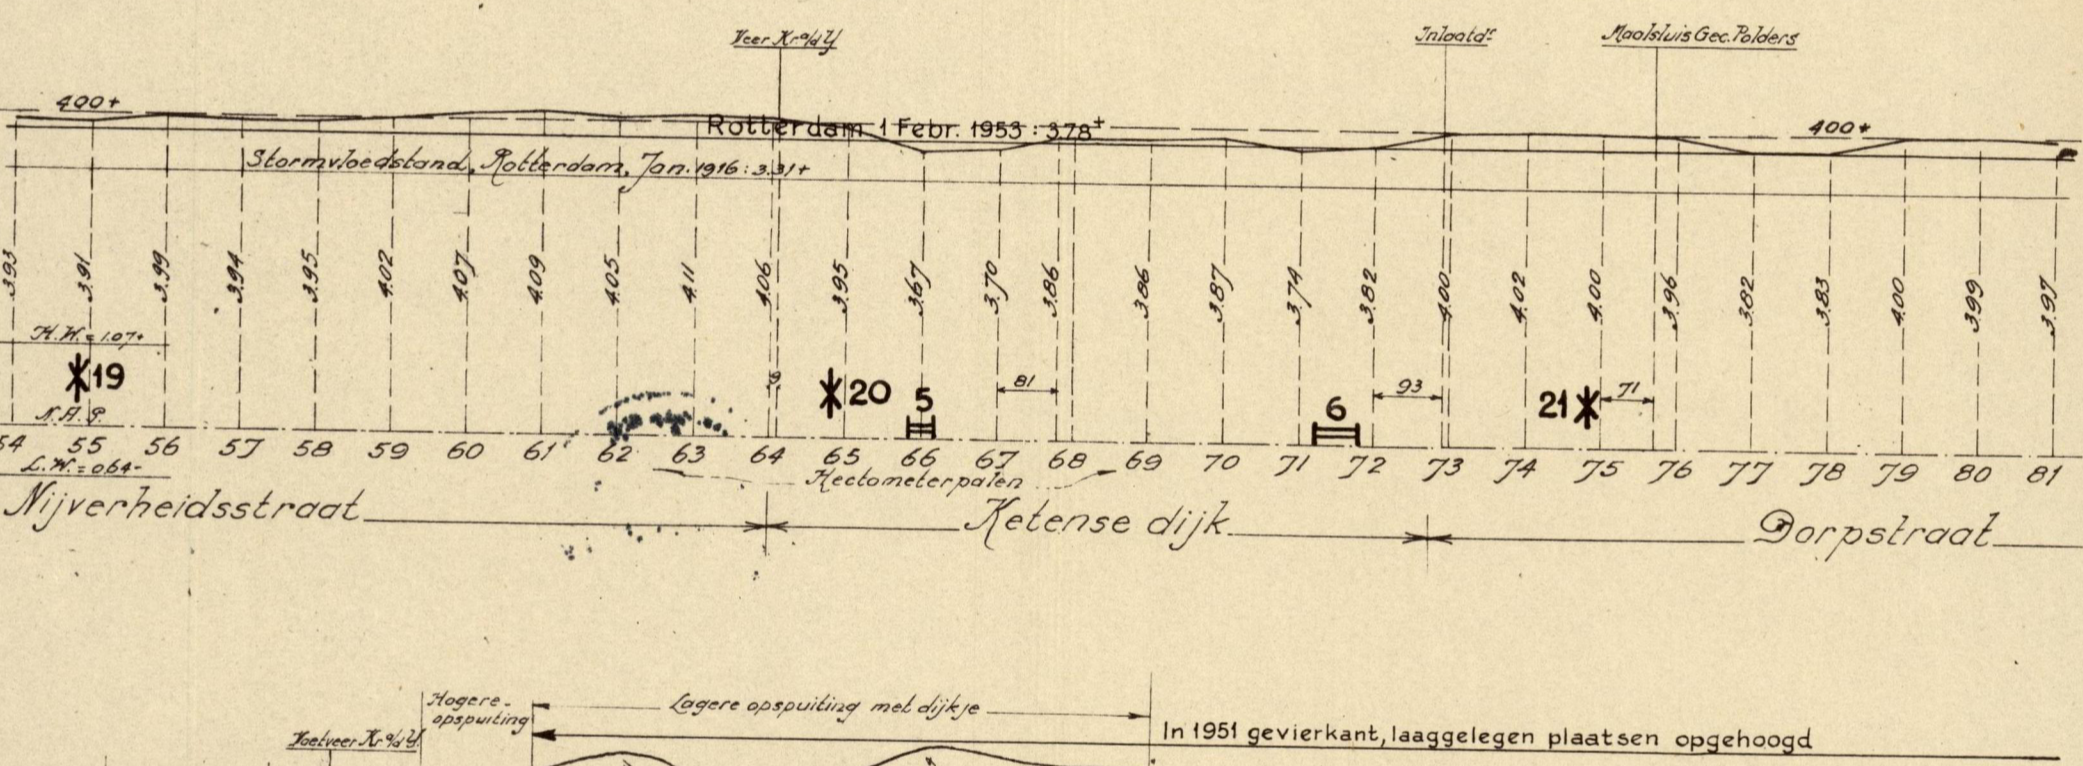 Veer Kr a/d Y
Inlaatds
Maalsluis Gec. Polders
400+
Rotterdam 1 Febr. 1953 : 3.78+
400+
Stormvloedstand, Rotterdam, Jan. 1916 : 3.31+
3.93 3.91 3.99 3.94 3.95 4.02 4.07 4.09 4.05 4.11 4.06 3.95 3.67 3.70 3.86 3.86 3.87 3.74 3.82 4.00 4.02 4.00 3.96 3.82 3.83 4.00 3.99 3.97
H.W. = 1.07+
19 9 20 5 81 6 93 21 71
N.A.P.
54 55 56 57 58 59 60 61 62 63 64 65 66 67 68 69 70 71 72 73 74 75 76 77 78 79 80 81
L.W. = 0.64-
Hectometerpalen
Nijverheidsstraat Ketense dijk Dorpstraat
Hogere-
opspuiting
Lagere opspuiting met dijkje
Voetveer Kr a/d Y.
In 1951 gevierkant, laaggelegen plaatsen opgehoogd